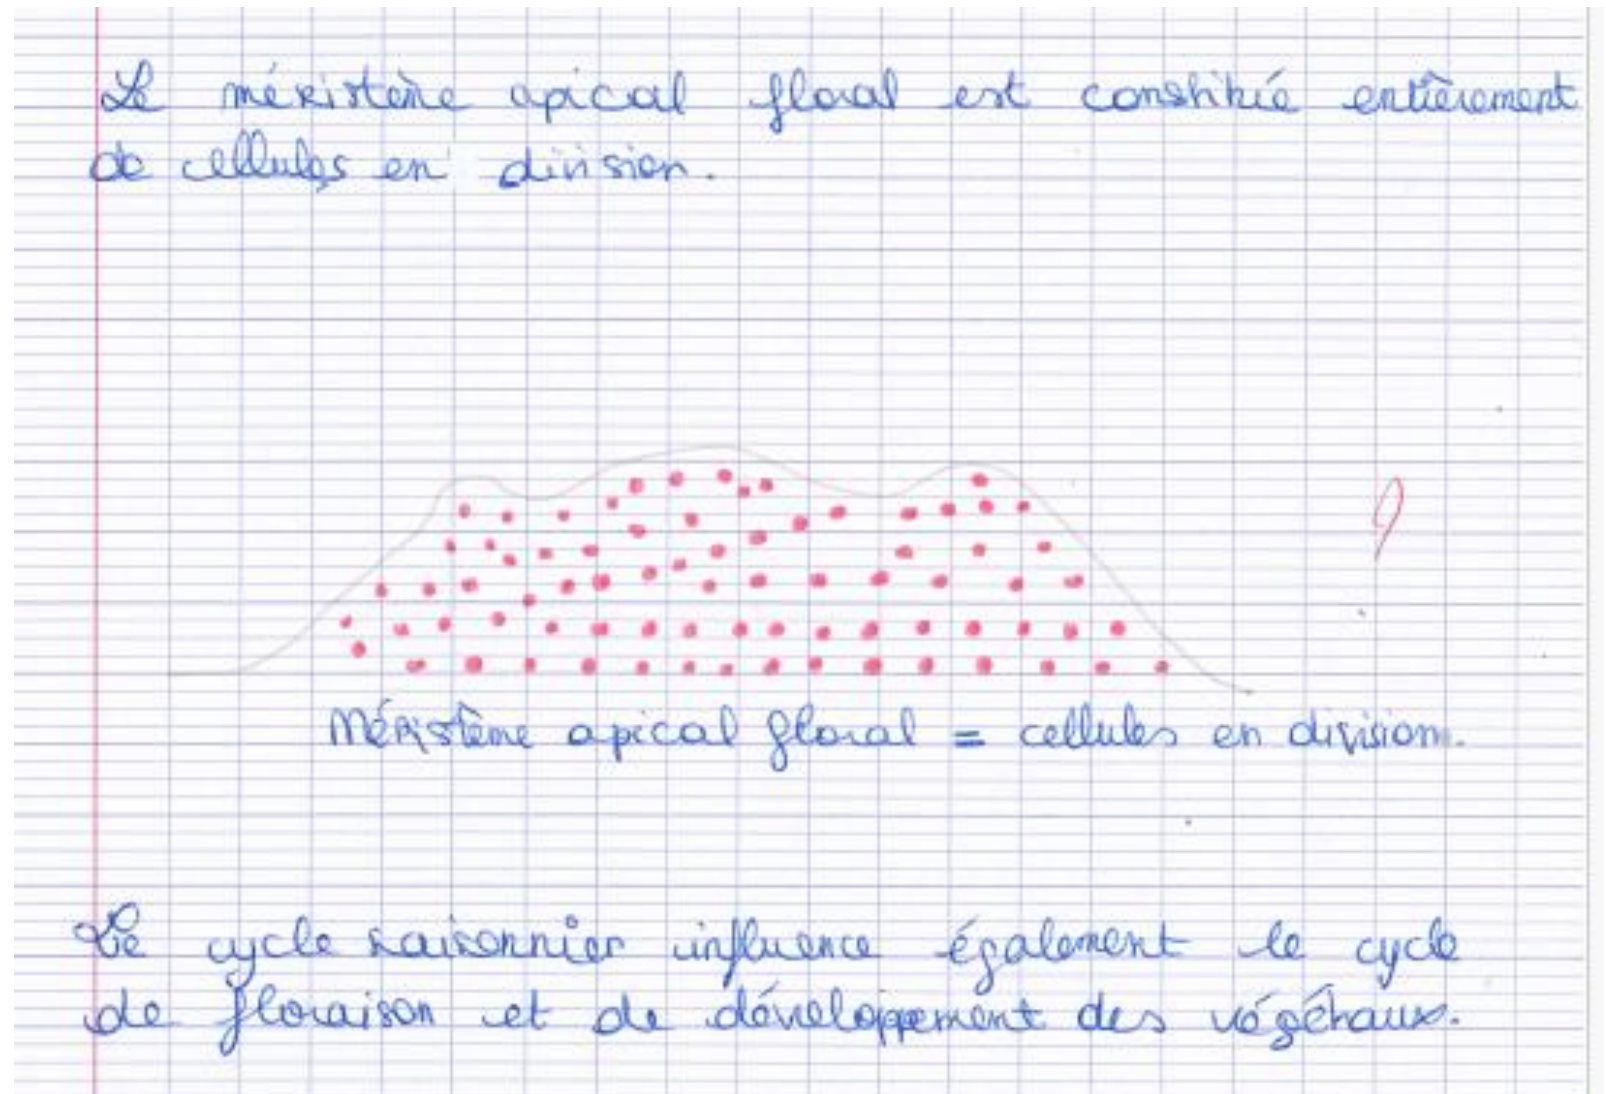 Le méristème apical floral est constitué entièrement
de cellules en division.
Méristème apical floral = cellules en division.
Le cycle saisonnier influence également le cycle
de floraison et de développement des végétaux.